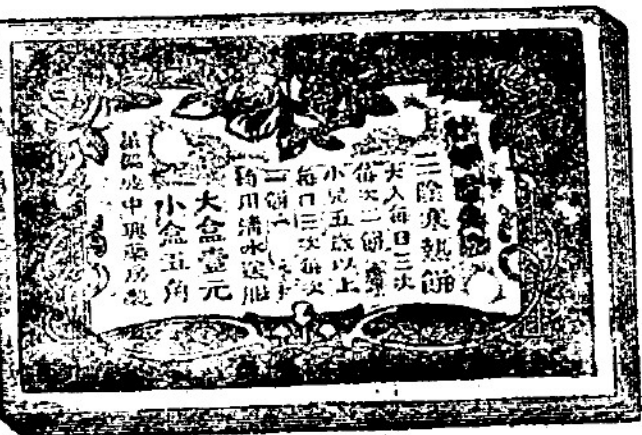 三陰寒熱餅
大人每日三次
每次二餅
小兒五歲以上
每日三次每次
一餅
均用清水送服
大盒壹元
小盒五角
中興藥房製